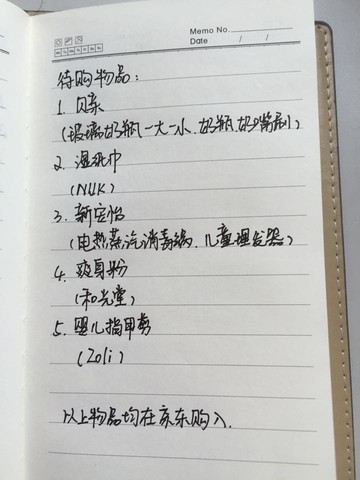 Memo No.
Date / /
待购物品：
1. 贝亲
(玻璃奶瓶一大一小、奶瓶奶嘴刷)
2. 湿纸巾
(NUK)
3. 新安怡
(电热蒸汽消毒锅、儿童理发器)
4. 爽身粉
(和光堂)
5. 婴儿指甲剪
(Zoli)
以上物品均在京东购入.